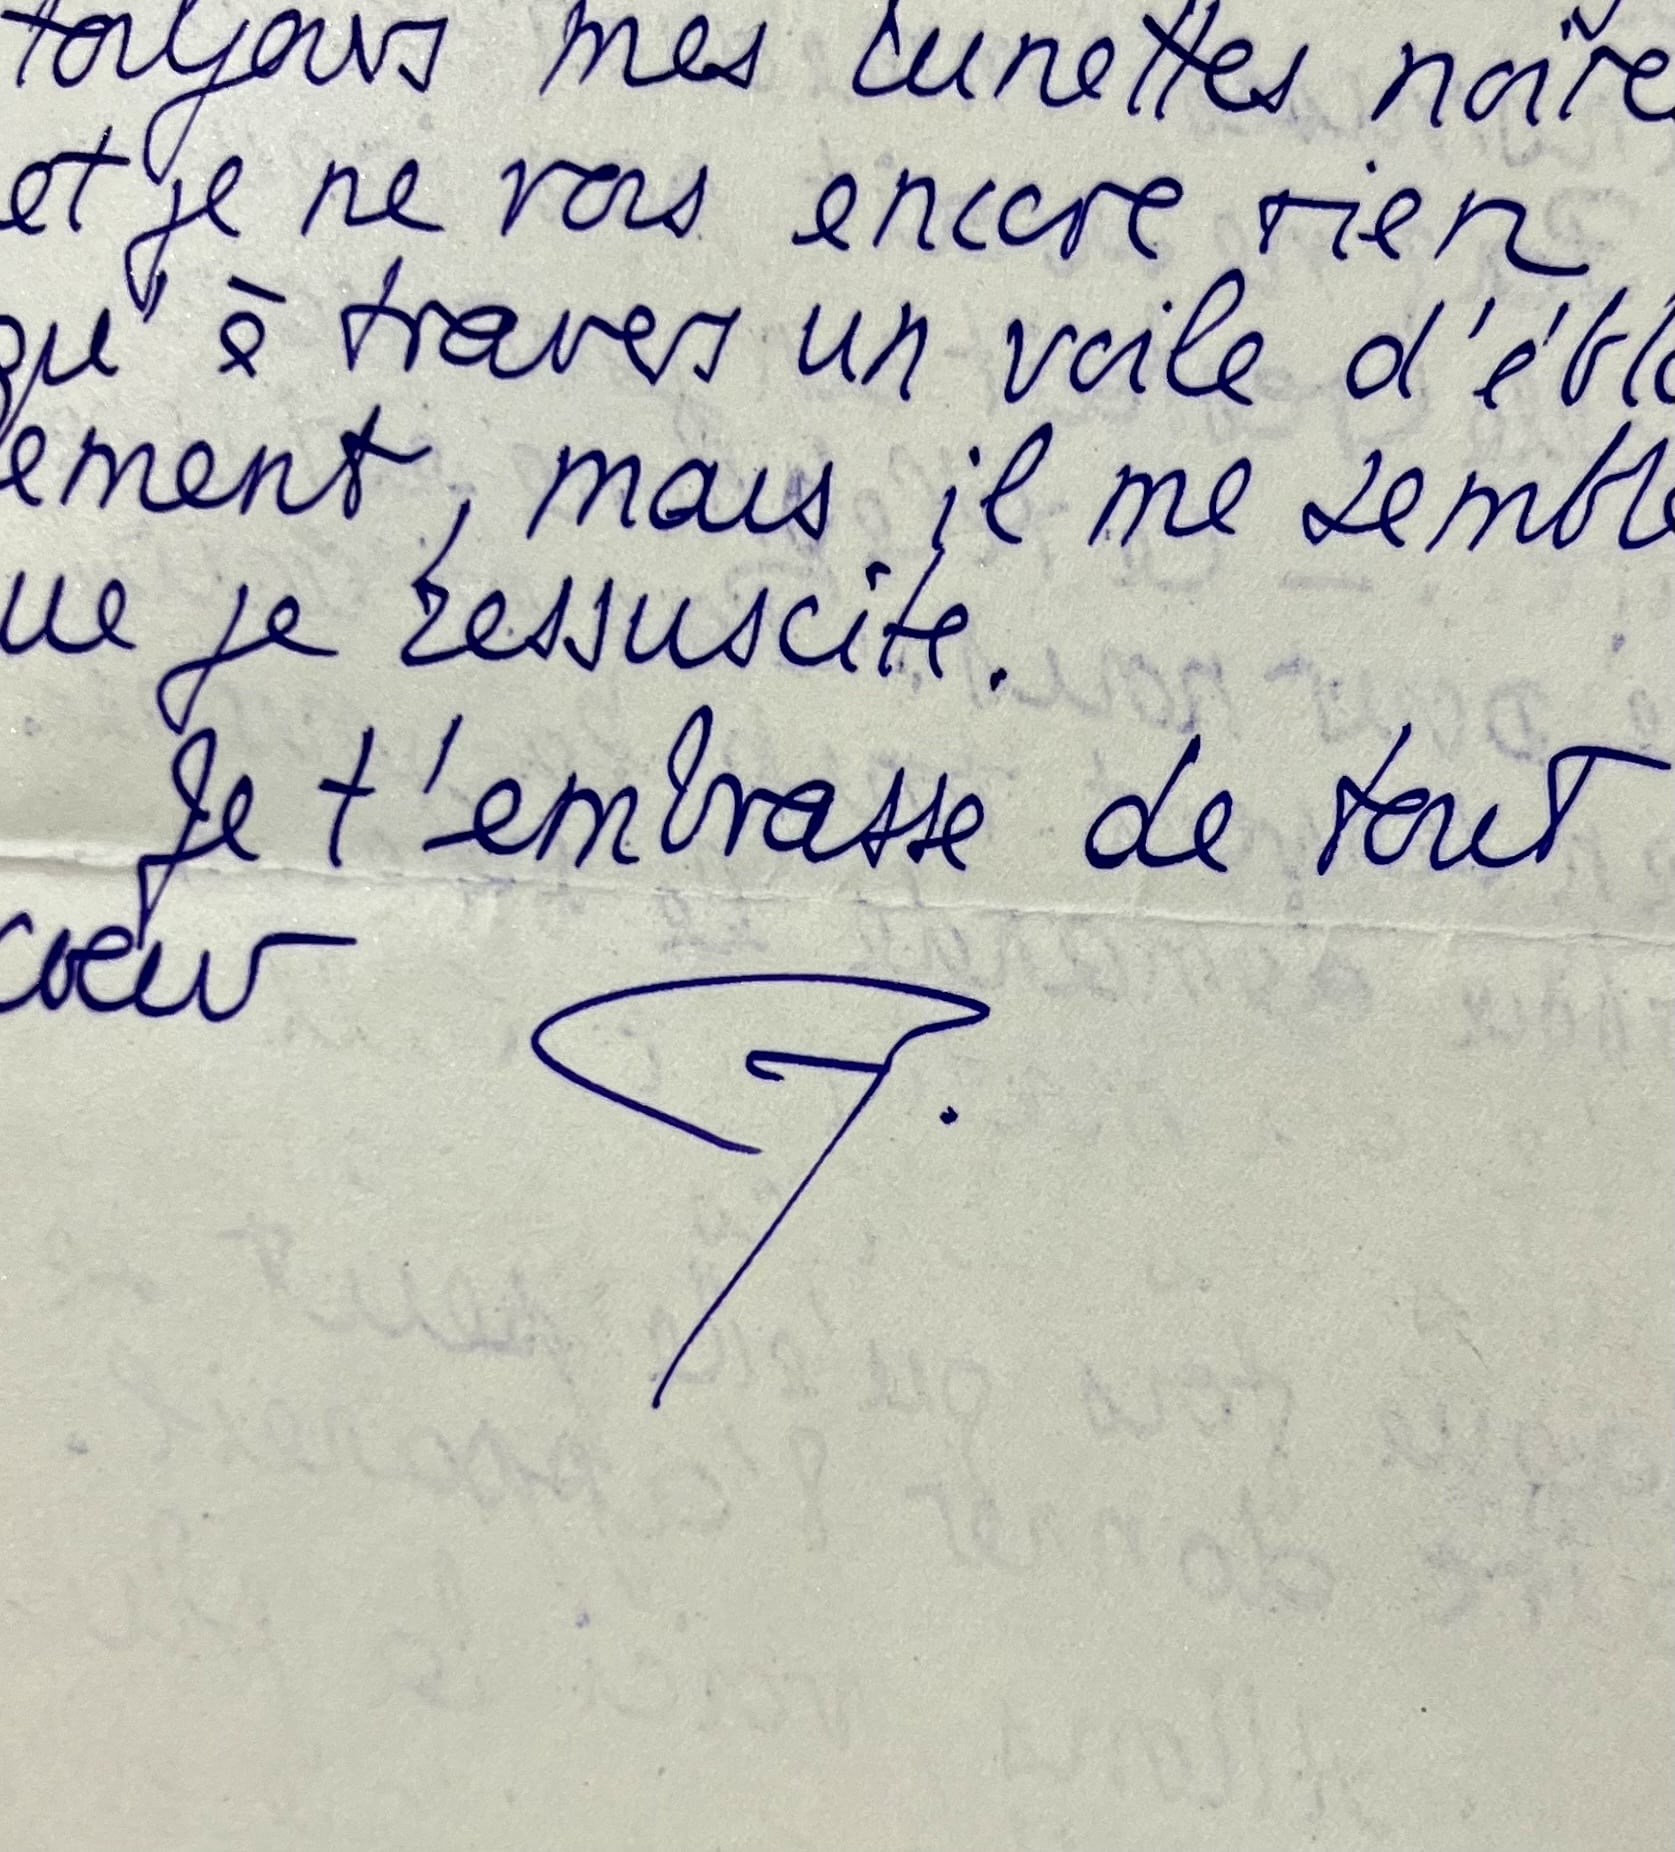 toujours mes lunettes noire
et je ne vois encore rien
qu'à travers un voile d'éblo
ement, mais il me semble
ue je ressuscite.
Je t'embrasse de tout
cœur